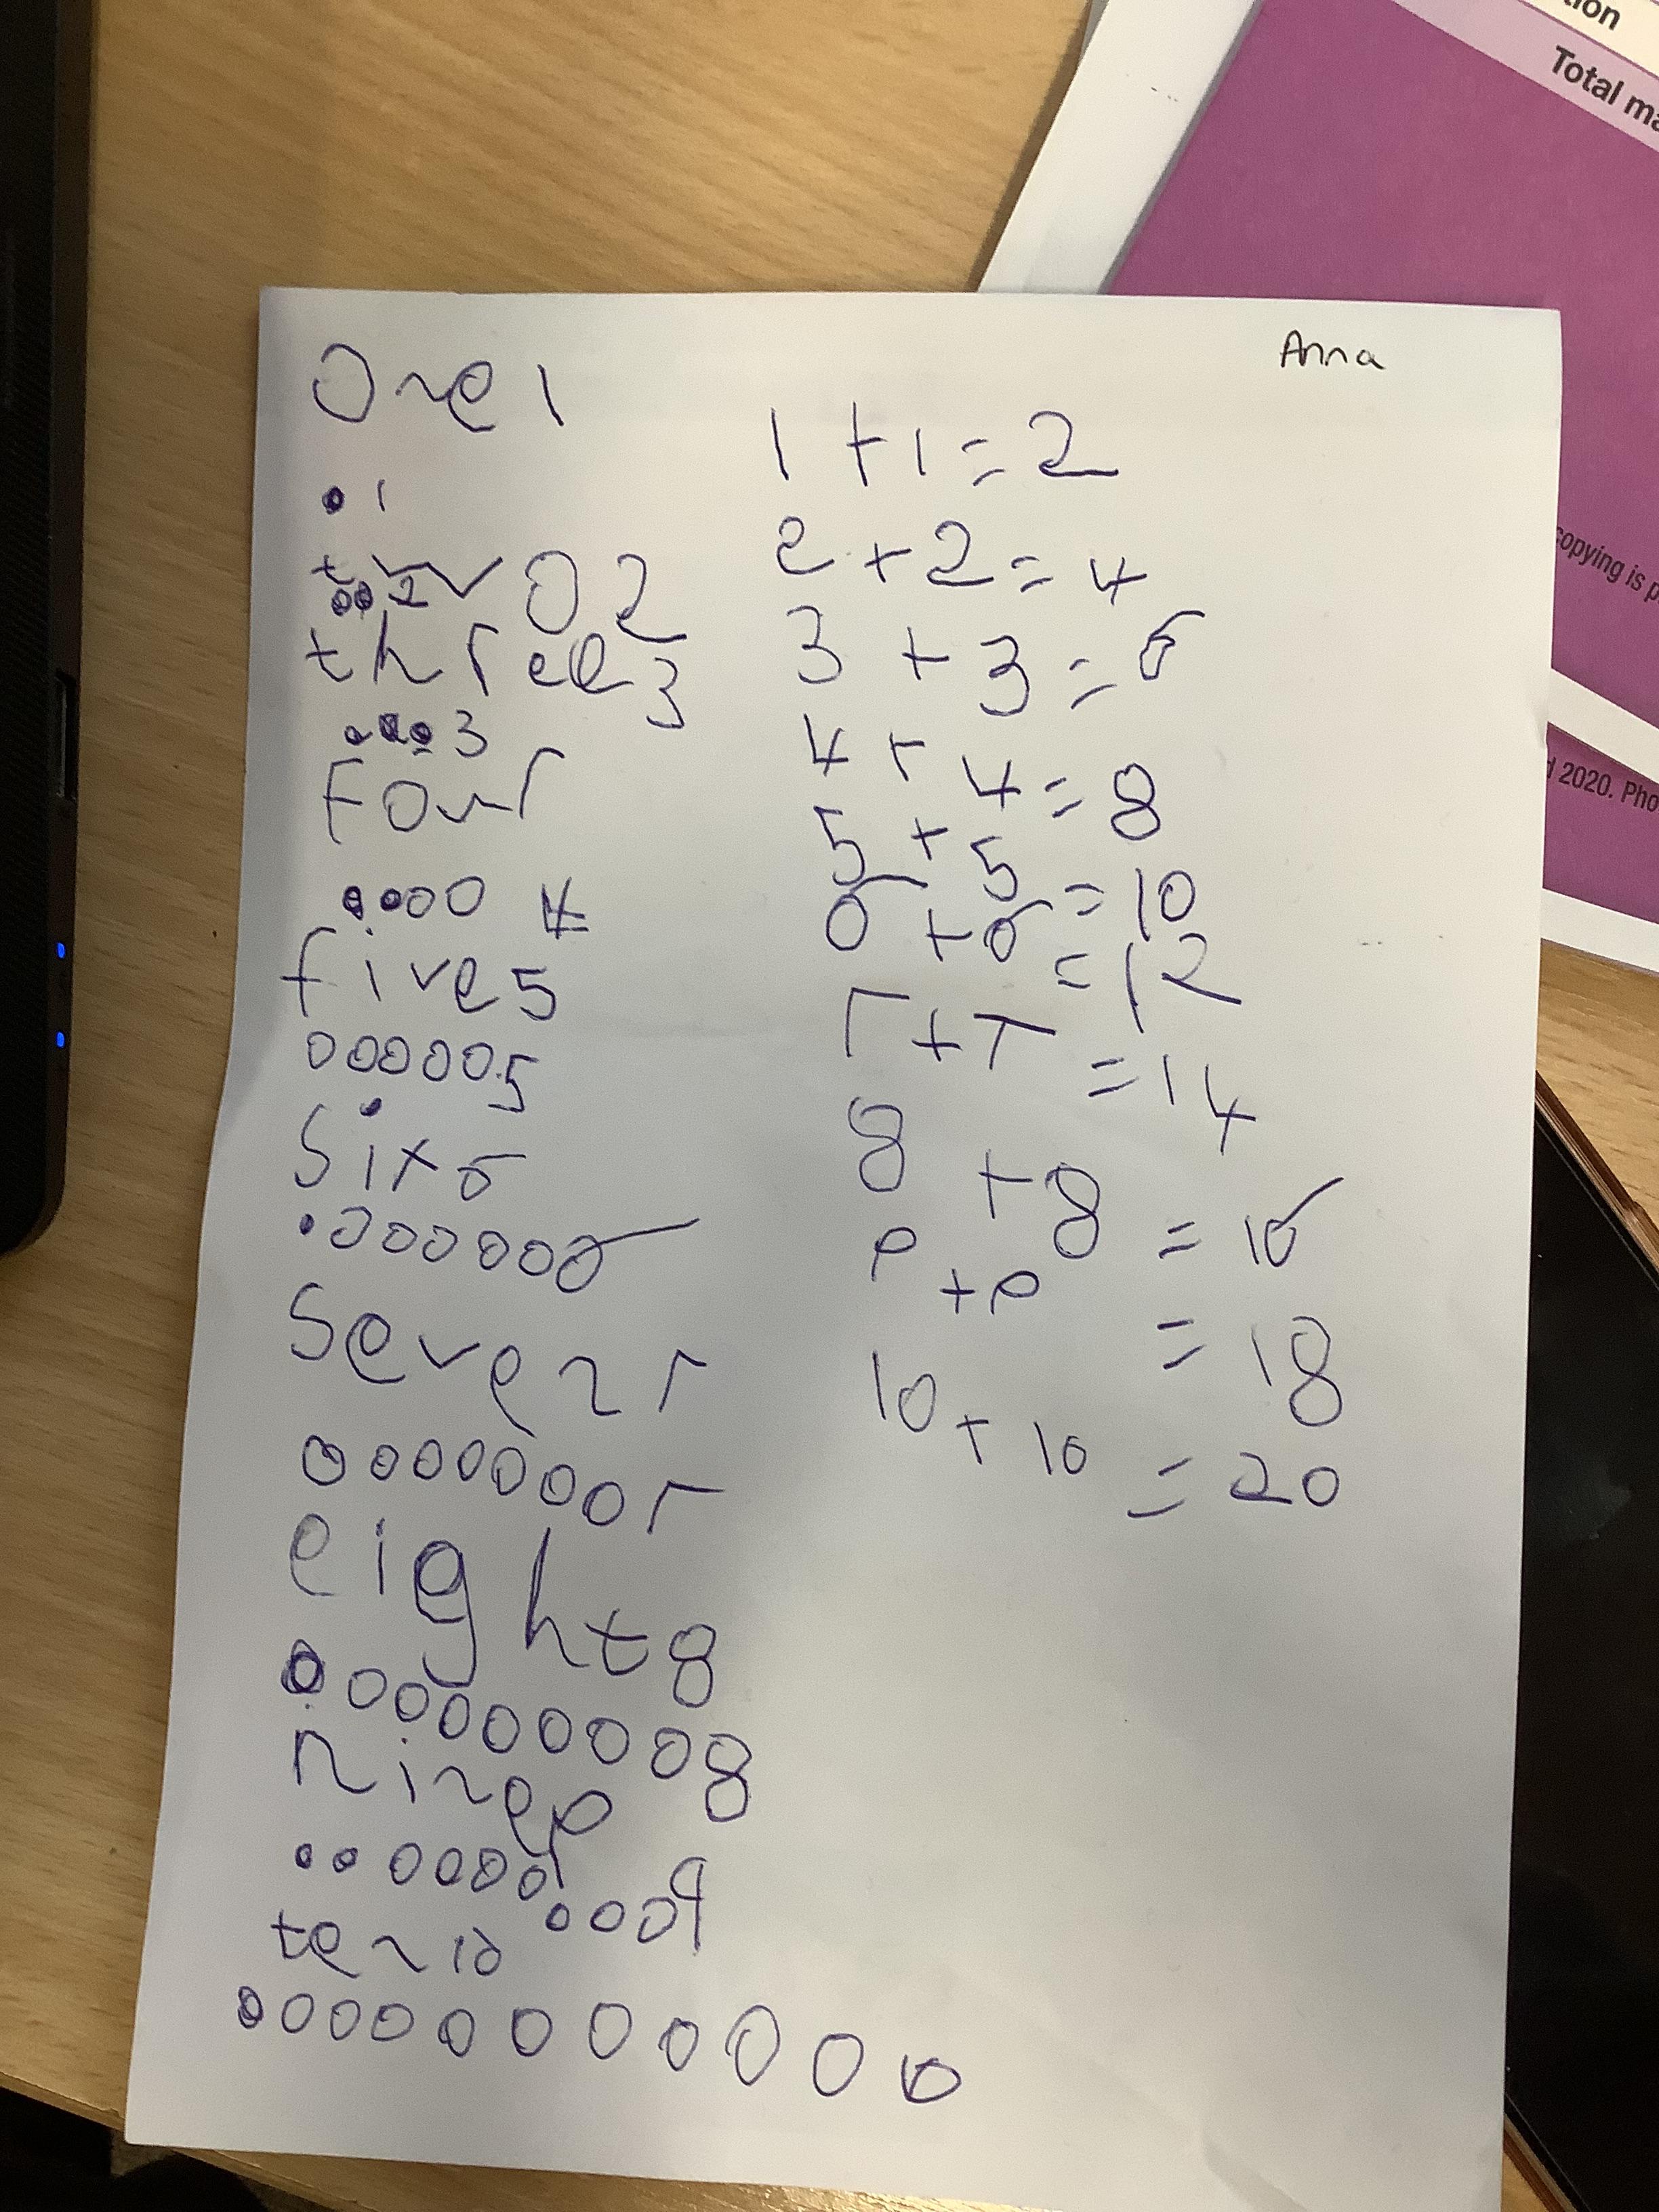 Anna
One 1
1
two 2
2
three 3
3
Four
4
five 5
5
Six 6
6
Seven 7
7
eight 8
8
nine 9
9
ten 10
10
1 + 1 = 2
2 + 2 = 4
3 + 3 = 6
4 + 4 = 8
5 + 5 = 10
6 + 6 = 12
7 + 7 = 14
8 + 8 = 16
9 + 9 = 18
10 + 10 = 20
Total
copying is
2020.